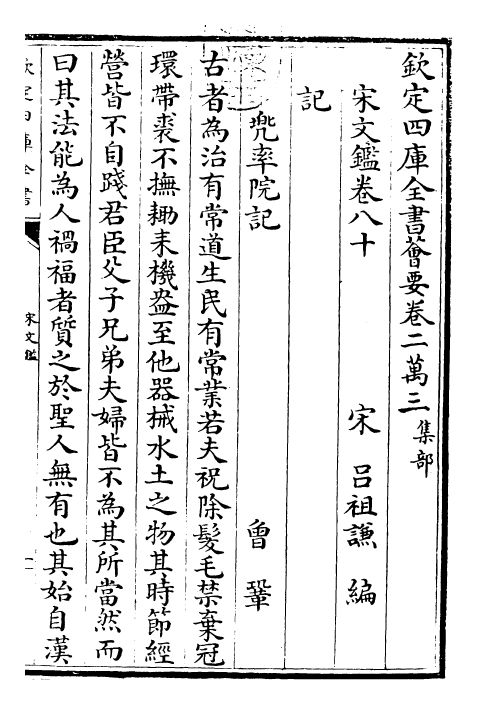 欽定四庫全書薈要卷二萬三 集部
宋文鑑卷八十 宋 呂祖謙 編
記
兜率院記 曾鞏
古者為治有常道生民有常業若夫祝除髮毛禁棄冠
環帶裘不撫耡耒機盎至他器械水土之物其時節經
營皆不自踐君臣父子兄弟夫婦皆不為其所當然而
曰其法能為人禍福者質之於聖人無有也其始自漢
欽定四庫全書
宋文鑑